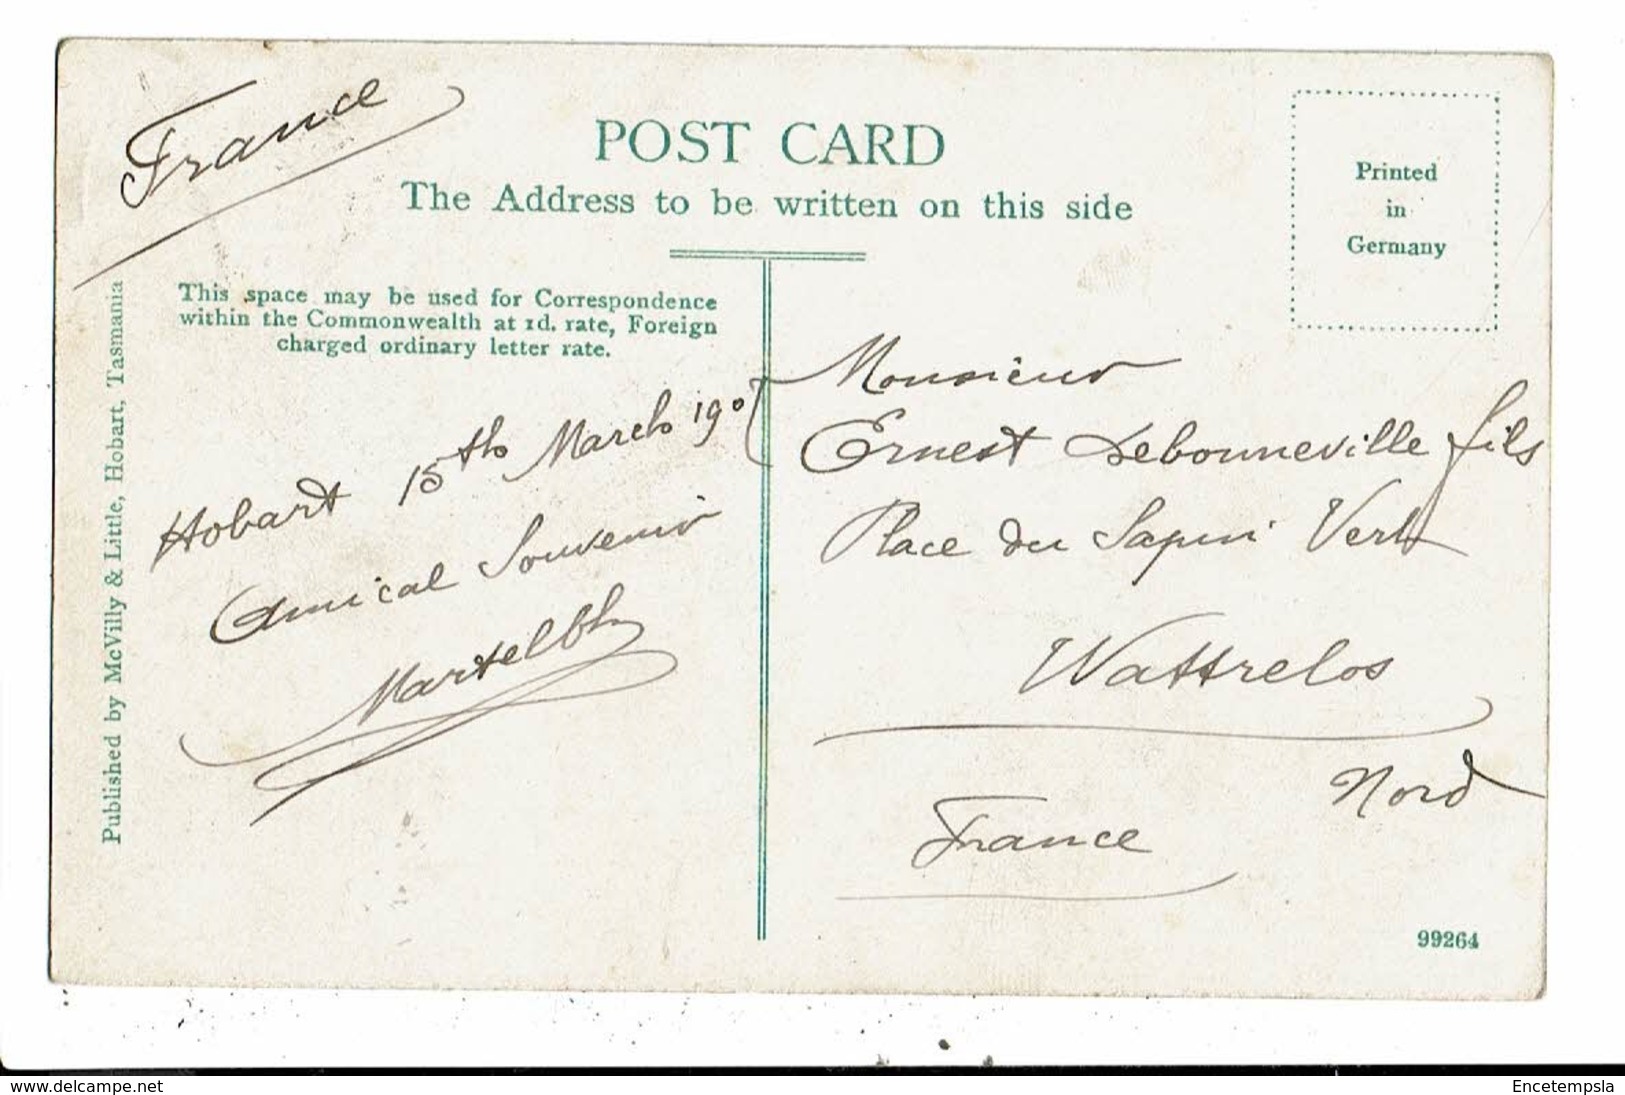 France
POST CARD
The Address to be written on this side
Printed
in
Germany
This space may be used for Correspondence
within the Commonwealth at 1d. rate, Foreign
charged ordinary letter rate.
Published by McVilly & Little, Hobart, Tasmania
Hobart 15th March 190
Amical Souvenir
Monsieur
Ernest Debonneville fils
Place du Sapin Vert
Wattrelos
Nord
France
99264
www.delcampe.net
Encetempsla